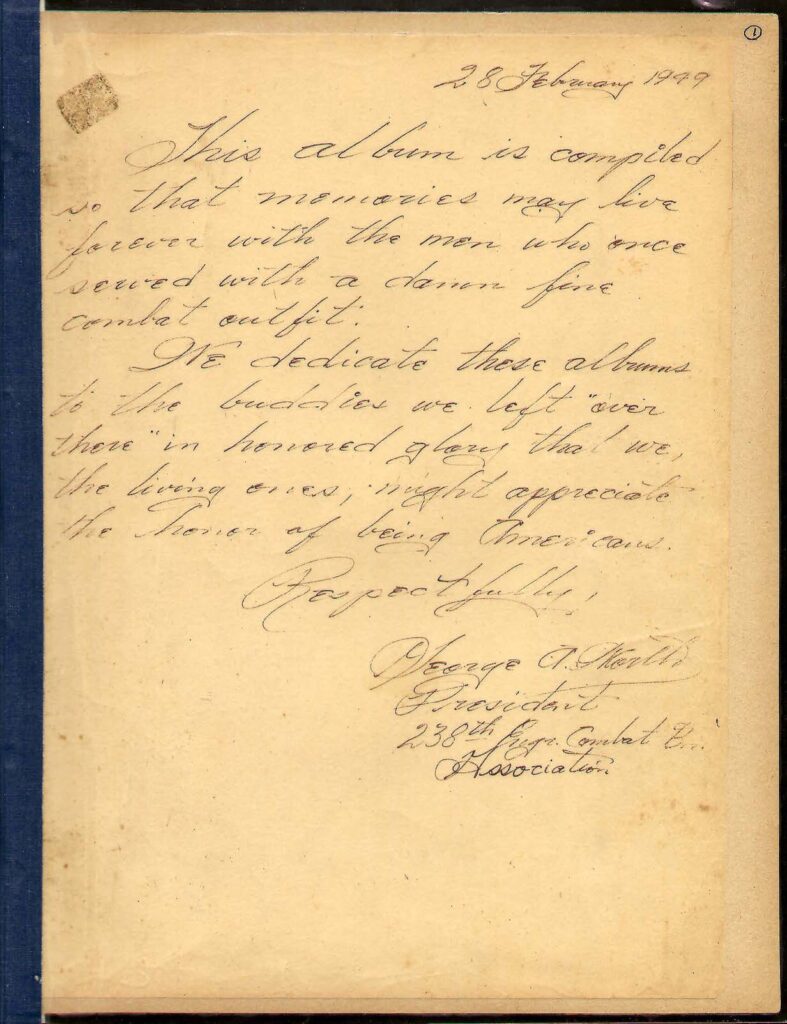 1
28 February 1949
This album is compiled
so that memories may live
forever with the men who once
served with a damn fine
combat outfit.
We dedicate these albums
to the buddies we left "over
there" in honored glory that we,
the living ones, might appreciate
the honor of being Americans.
Respectfully,
George A.
President
238th Engr. Combat Bn.
Association